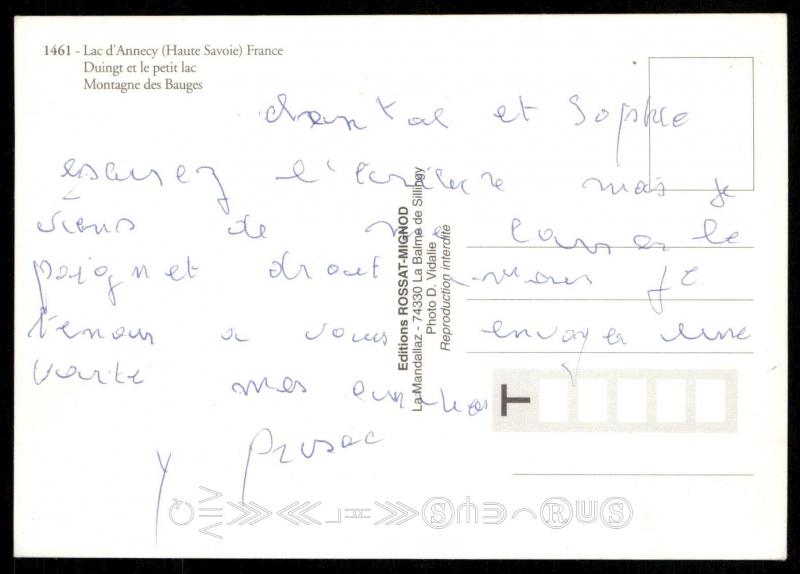 1461 - Lac d'Annecy (Haute Savoie) France
Duingt et le petit lac
Montagne des Bauges
Chantal et Sophie
l'écriture mais je
viens de me casser le
poignet droit mais je
tenais a vous envoyer une
carte mes
Y
Editions ROSSAT-MIGNOD
La Mandallaz - 74330 La Balme de Sillingy
Photo D. Vidalie
Reproduction interdite
T